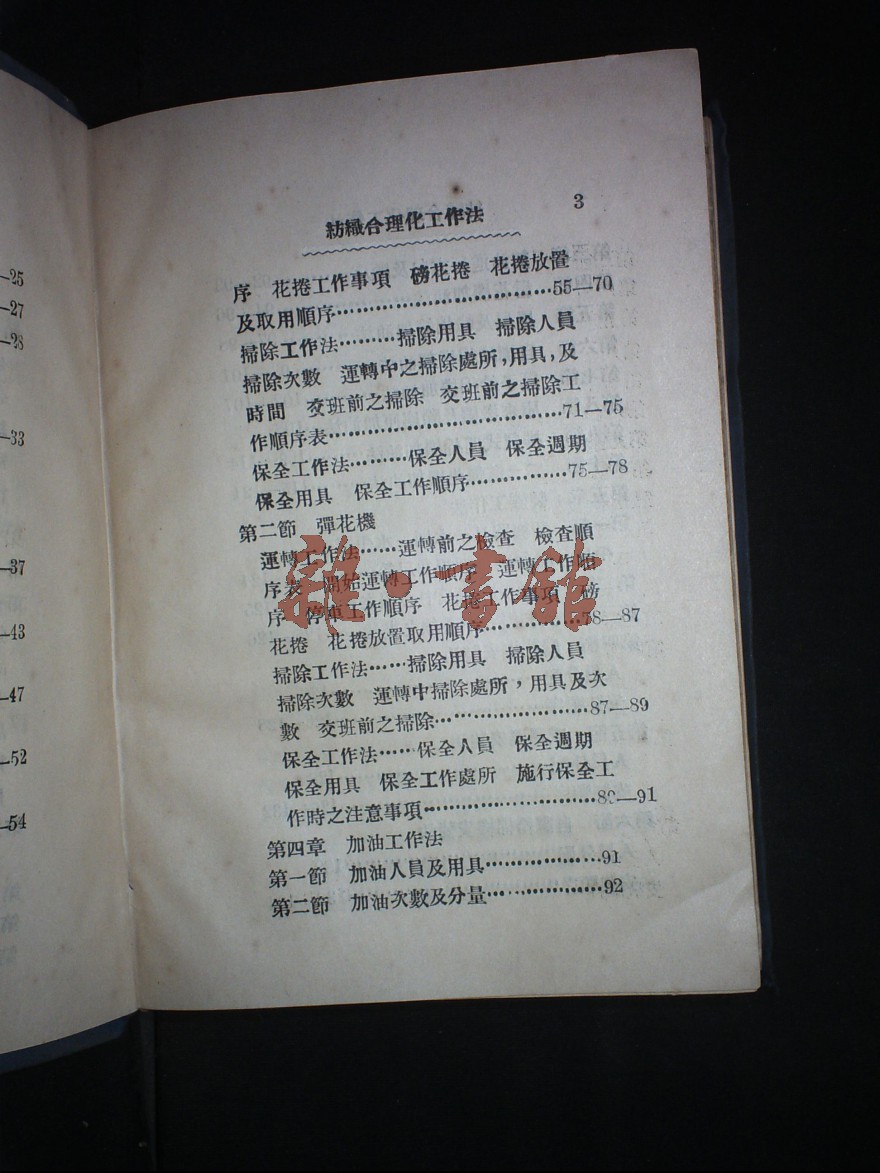 —25
—27
—28
—33
—37
—43
—47
—52
—54
紡織合理化工作法
3
序　花捲工作事項　磅花捲　花捲放置
及取用順序……………………………55—70
掃除工作法………掃除用具　掃除人員
掃除次數　運轉中之掃除處所,用具,及
時間　交班前之掃除　交班前之掃除工
作順序表………………………………71—75
保全工作法………保全人員　保全週期
保全用具　保全工作順序……………75—78
第二節　彈花機
運轉工作法……運轉前之檢查　檢查順
序表　開始運轉工作順序　運轉工作順
序　停車工作順序　花捲工作事項　磅
花捲　花捲放置取用順序……………78—87
掃除工作法……掃除用具　掃除人員
掃除次數　運轉中掃除處所，用具及次
數　交班前之掃除……………………87—89
保全工作法……保全人員　保全週期
保全用具　保全工作處所　施行保全工
作時之注意事項………………………89—91
第四章　加油工作法
第一節　加油人員及用具………………91
第二節　加油次數及分量………………92
雜·書館